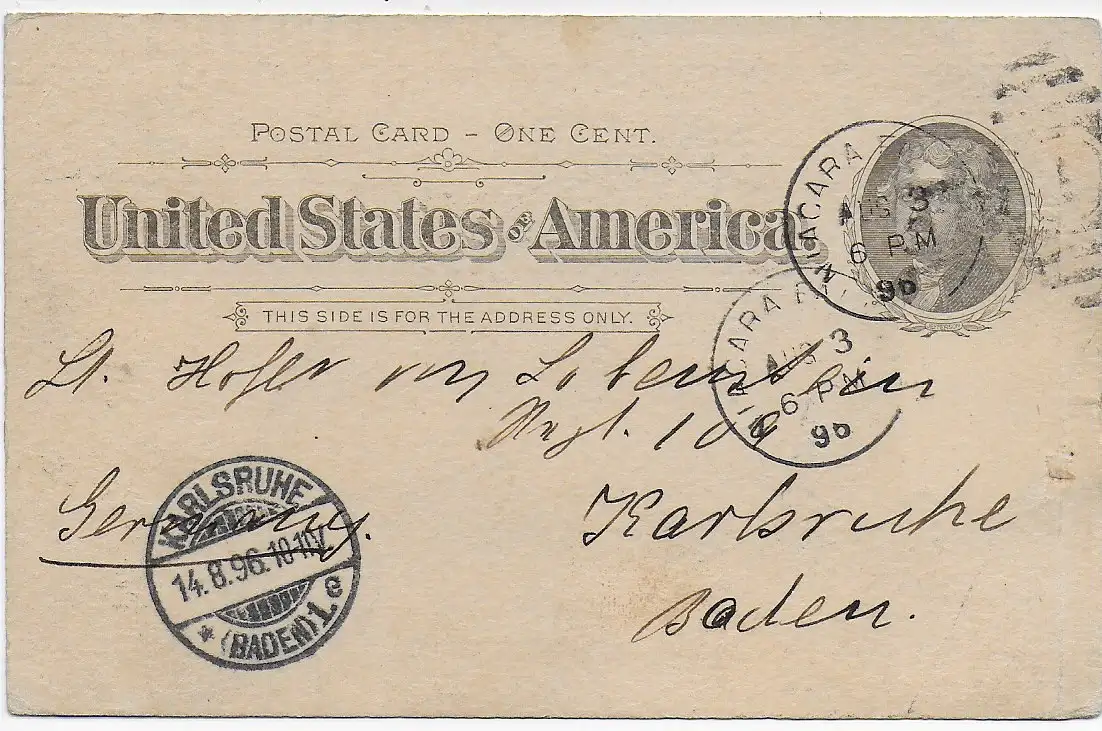 POSTAL CARD - ONE CENT.
United States OF America
THIS SIDE IS FOR THE ADDRESS ONLY.
NIAGARA
AUG 3
6 PM
96
NIAGARA FALL
AUG 3
6 PM
96
Lt. Hofer von Lobenstein
Regt. 109
Germany.
Karlsruhe
Baden.
KARLSRUHE
14.8.96.10-11V.
* (BADEN) 1.e